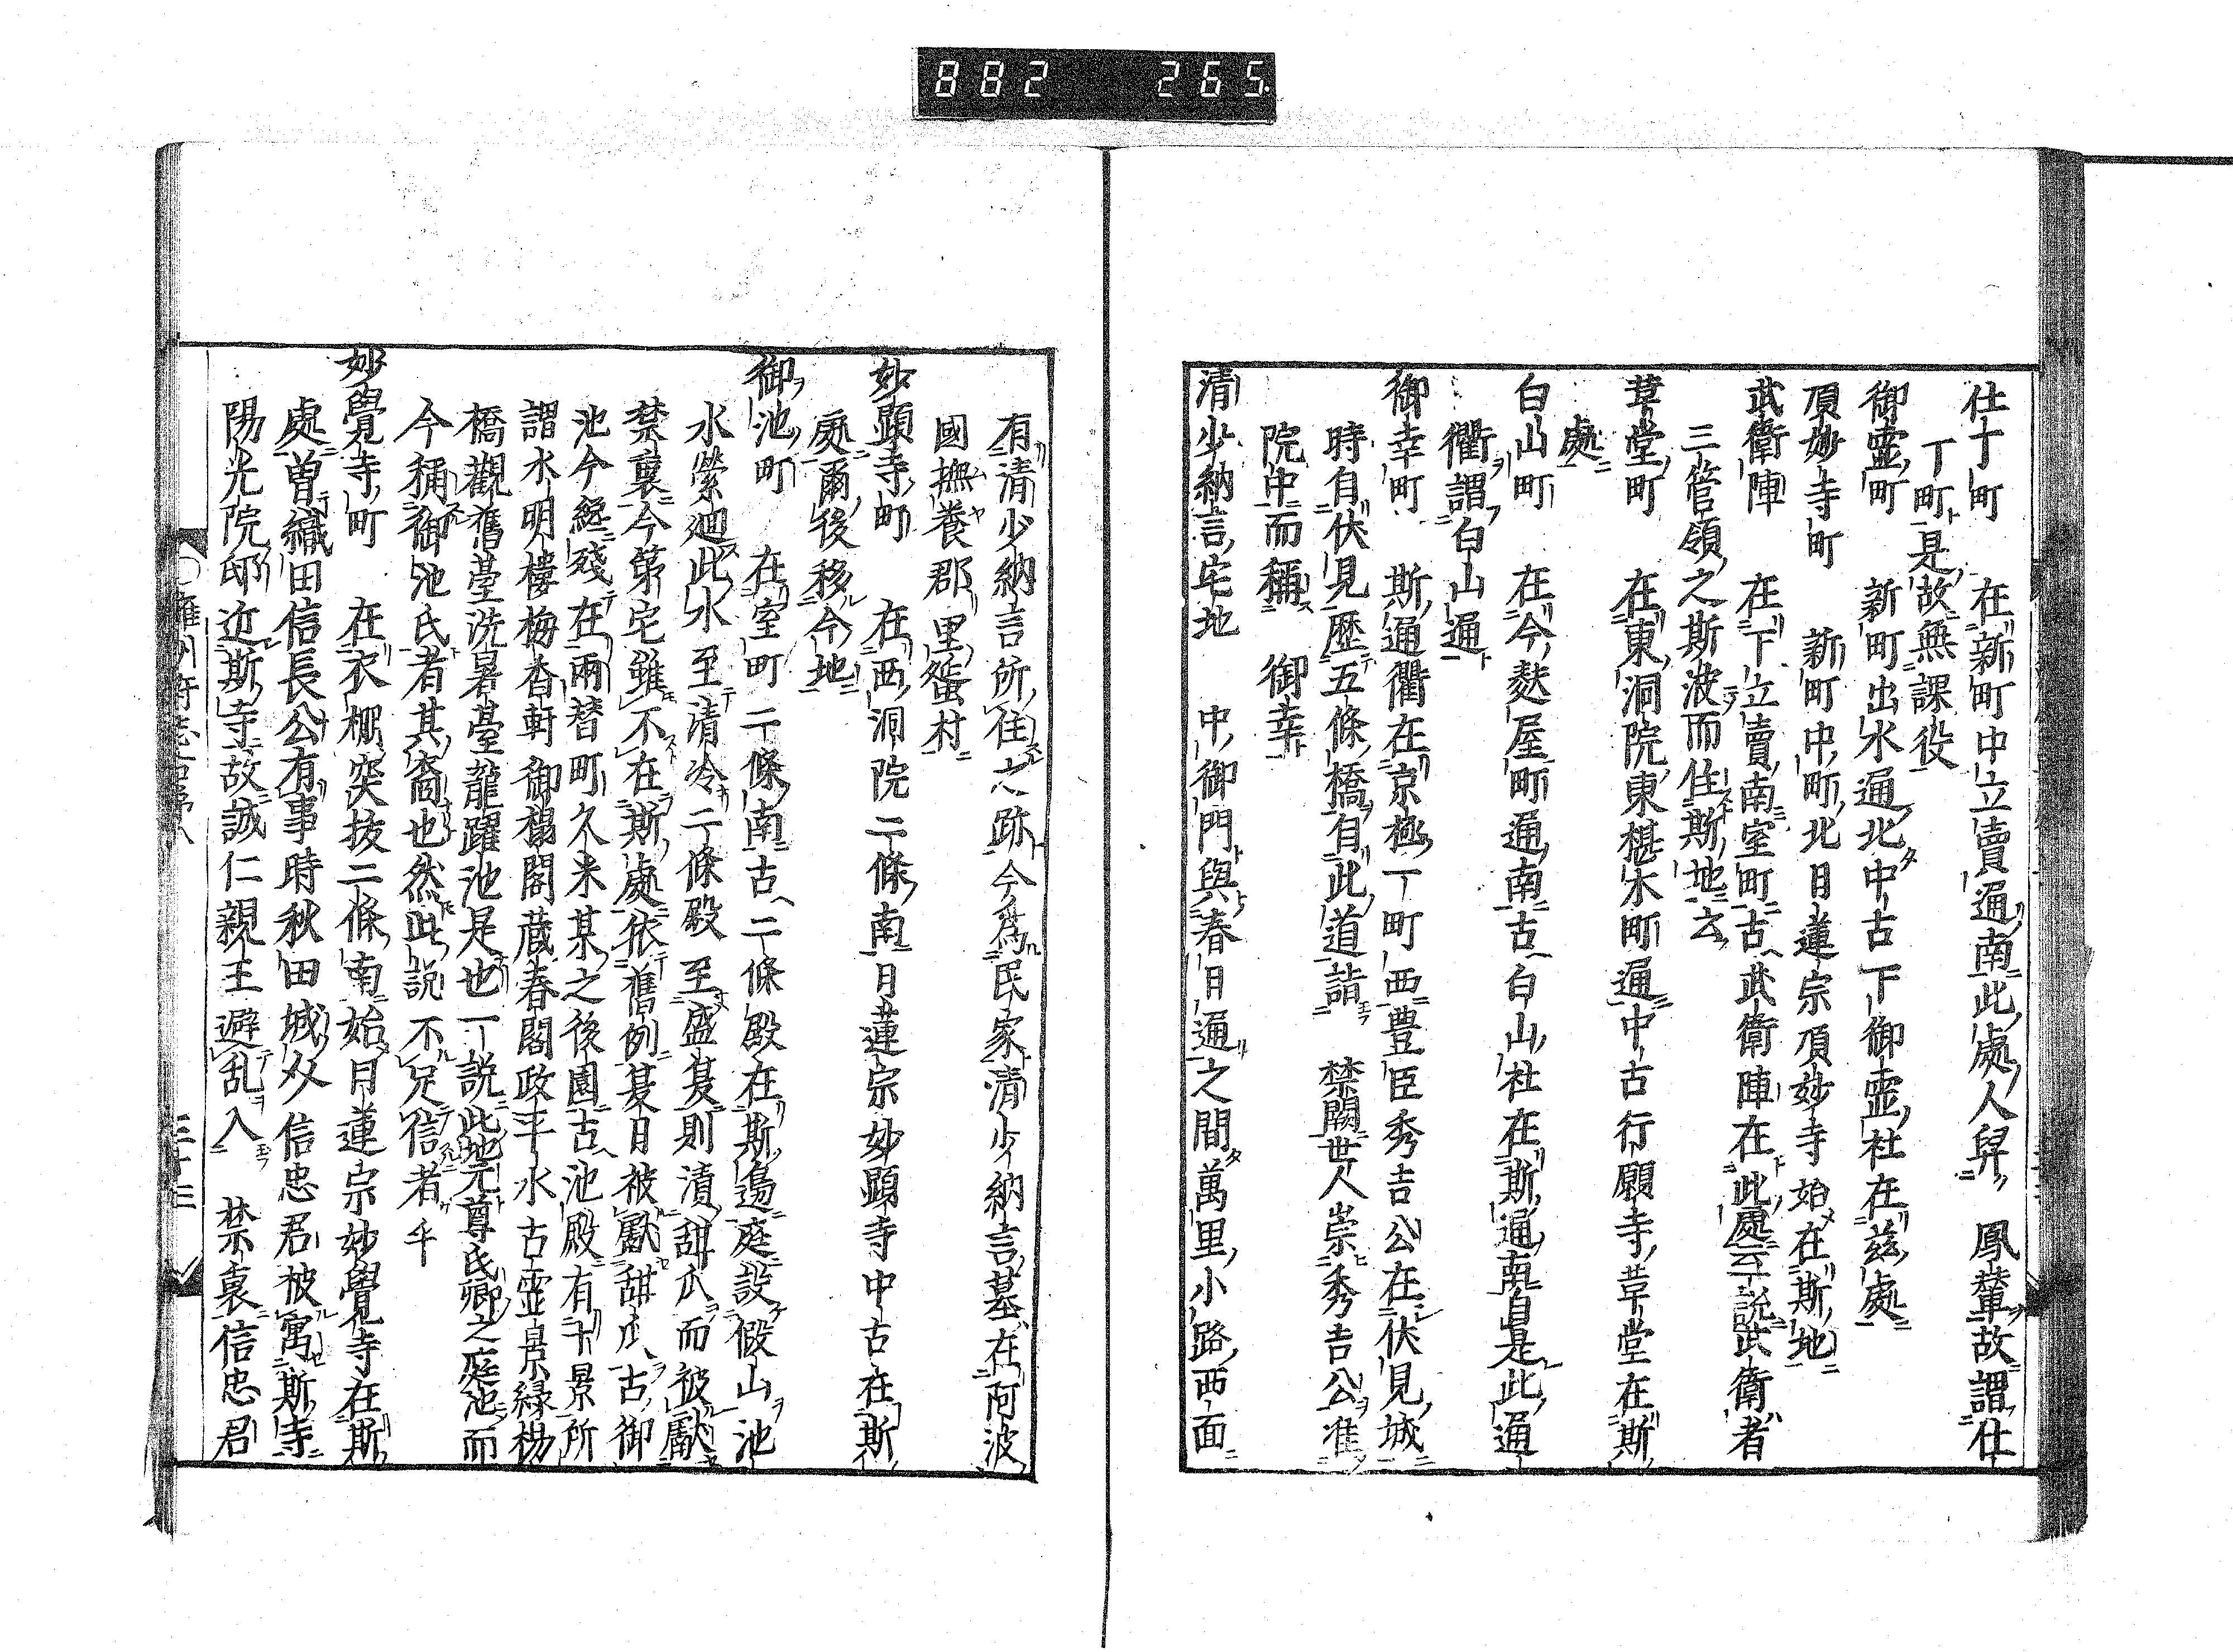 882 265
仕丁町 在新町中立賣通南此處人舁 鳳輦故謂仕
丁町是故無課役
御霊町 新町出水通北中古下御霊社在茲處
頂妙寺町 新町中町北日蓮宗頂妙寺始在斯地
武衛陣 在下立賣南室町古武衛陣在此處云一説武衛者
三管領之斯波而住斯地云
革堂町 在東洞院東椹木町通中古行願寺革堂在斯
處
白山町 在今麩屋町通南古白山社在斯通南自是此通
衢謂白山通
御幸町 斯通衢在京極一町西豊臣秀吉公在伏見城
時自伏見歴五條橋自此道詣 禁闕世人崇秀吉公准
院中而稱 御幸
清少納言宅地 中御門與春日通之間萬里小路西面
有清少納言所住之跡今爲民家清少納言墓在阿波
國撫養郡里蜑村
妙顕寺町 在西洞院二條南日蓮宗妙顕寺中古在斯
處爾後移今地
御池町 在室町二條南古二條殿在斯邊庭設假山池
水縈廻此水至清冷二條殿至盛夏則漬甜瓜而被獻
禁裏今第宅雖不在斯處依舊例夏日被獻甜瓜古御
池今纔殘在兩替町久米某之後園古池殿有十景所
謂水明樓梅香軒御榻閣蔵春閣政平水古霊泉緑楊
橋觀舊臺洗暑臺龍躍池是也一説此地元尊氏卿之庭池而
今稱御池氏者其裔也然此説不足信者乎
妙覺寺町 在衣棚突抜二條南始日蓮宗妙覺寺在斯
處曽織田信長公有事時秋田城介信忠君被寓斯寺
陽光院邸近斯寺故誠仁親王避乱入 禁裏信忠君
雍州府志古蹟八
三十三